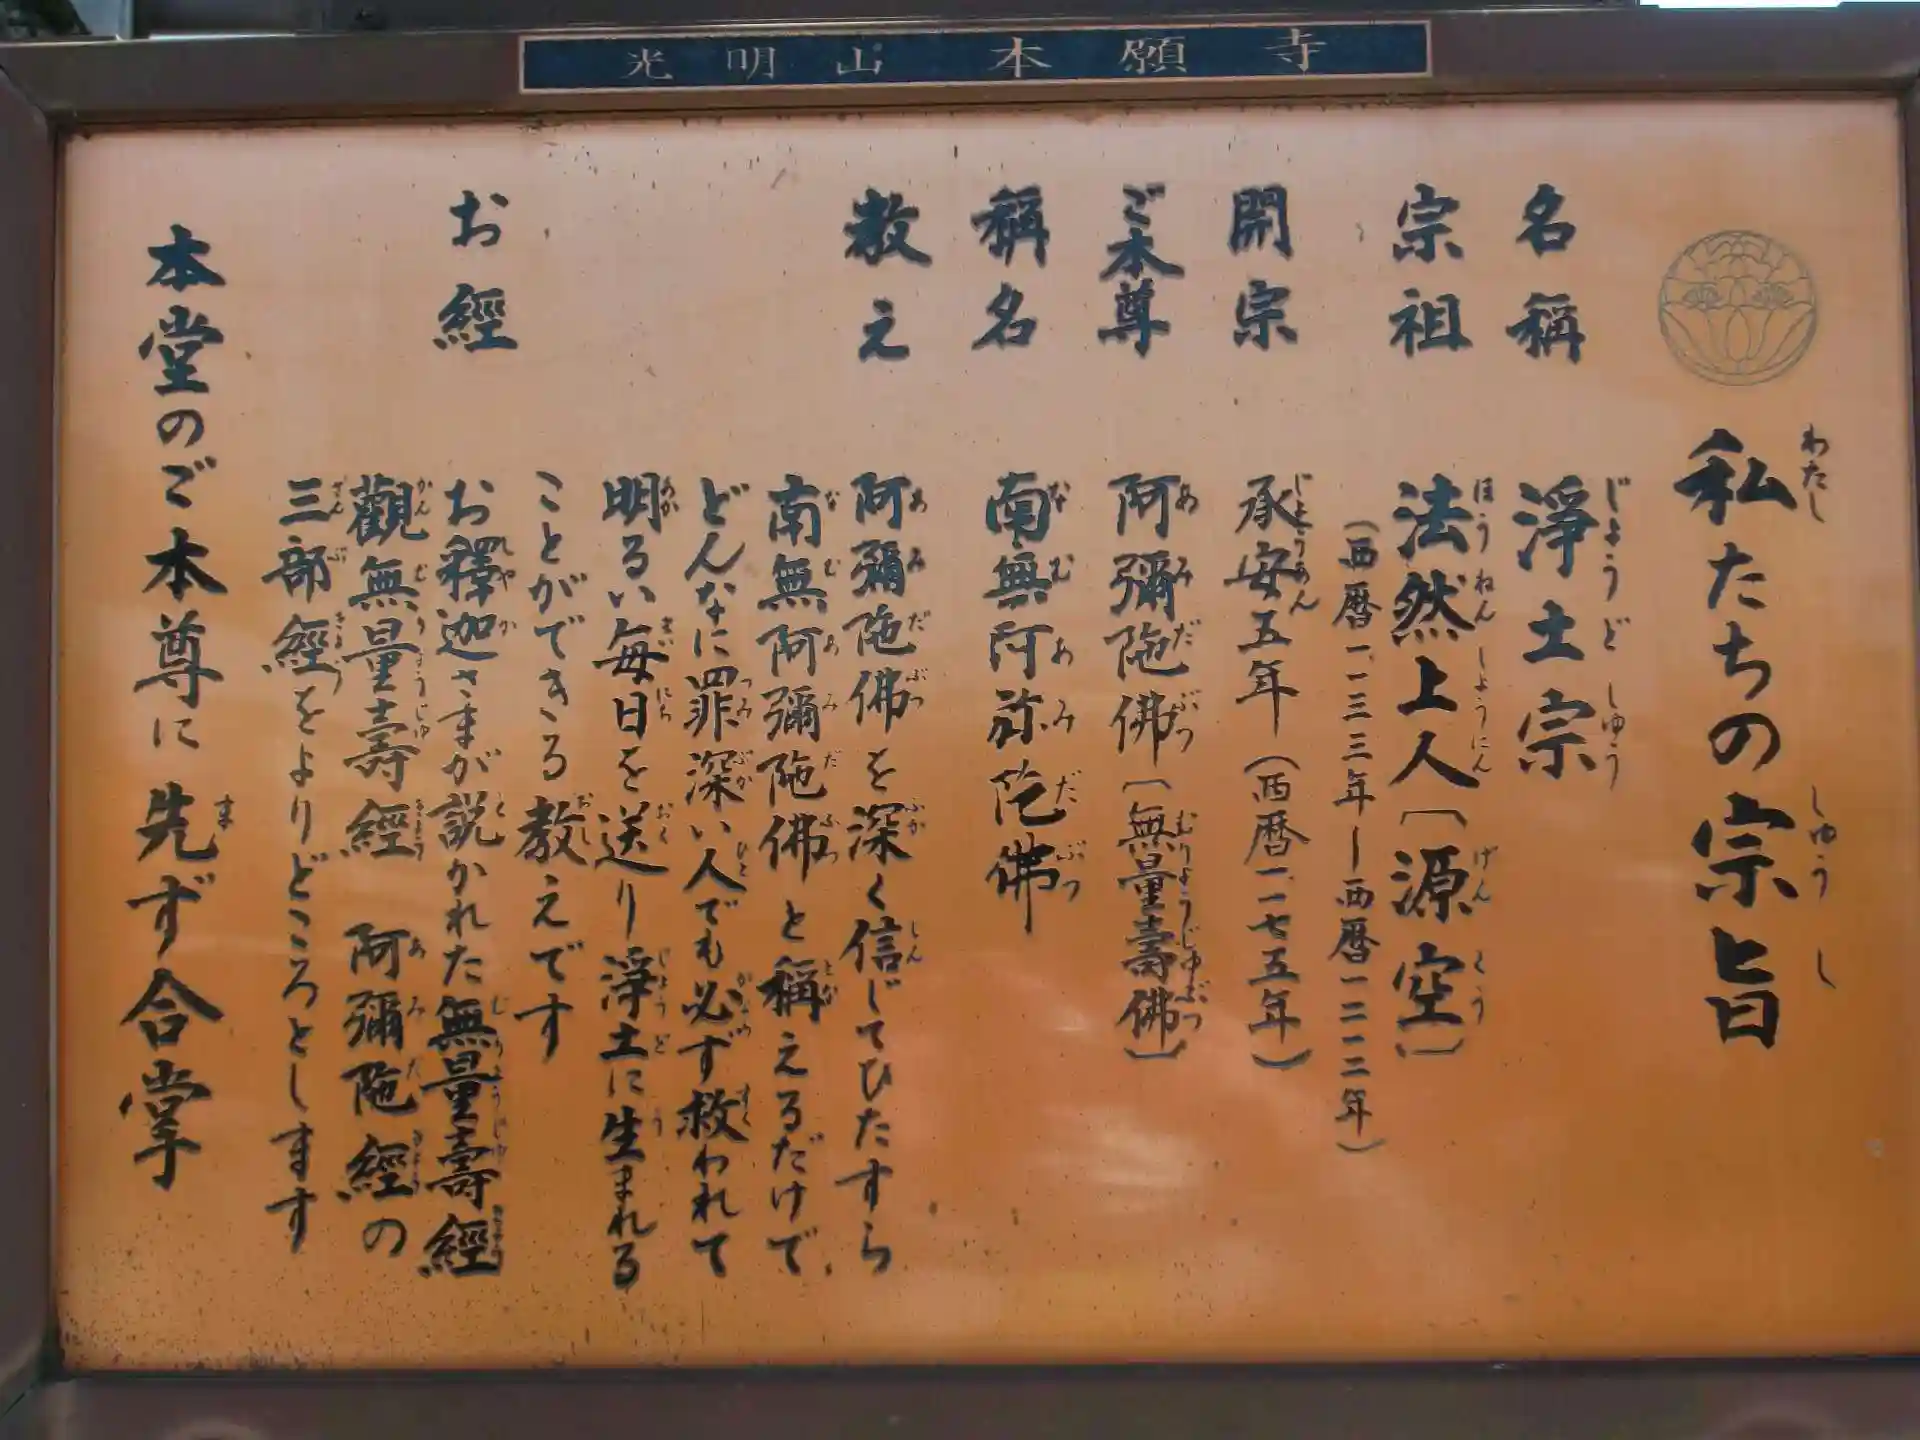 光明山 本願寺
私たちの宗旨
名稱 淨土宗
宗祖 法然上人〔源空〕
(西暦一一三三年ー西暦一二一二年)
開宗 承安五年(西暦一一七五年)
ご本尊 阿彌陁佛〔無量壽佛〕
稱名 南無阿弥陀佛
教え 阿彌陁佛を深く信じてひたすら
南無阿彌陁佛と稱えるだけで、
どんなに罪深い人でも必ず救われて
明るい毎日を送り淨土に生まれる
ことができる教えです
お經 お釋迦さまが説かれた無量壽經
觀無量壽經 阿彌陁經の
三部經をよりどころとします
本堂のご本尊に先ず合掌